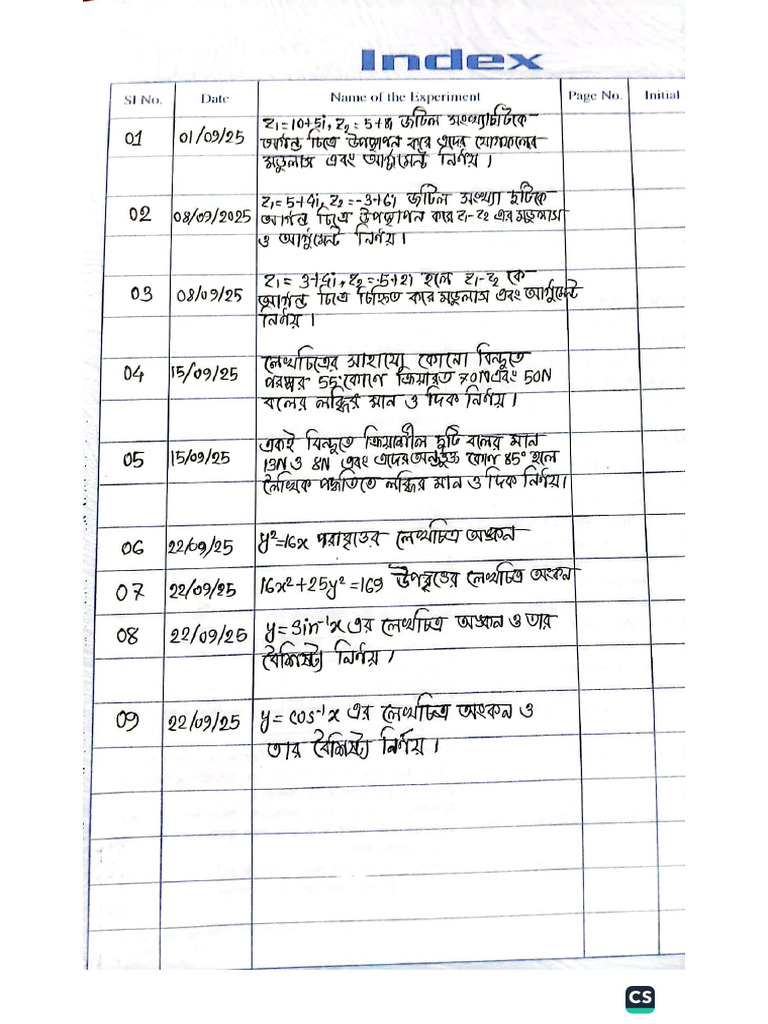 Index
SI No. Date Name of the Experiment Page No. Initial
01 01/09/25 z₁=10+5i, z₂=5+8i জটিল সংখ্যাদুটিকে
আর্গন্ড চিত্রে উপস্থাপন করে এদের যোগফলের
মডুলাস এবং আর্গুমেন্ট নির্ণয়।
02 08/09/2025 z₁=5+4i, z₂=-3+6i জটিল সংখ্যা দুটিকে
আর্গন্ড চিত্রে উপস্থাপন করে z₁-z₂ এর মডুলাস
ও আর্গুমেন্ট নির্ণয়।
03 08/09/25 z₁=3+4i, z₂=-5+2i হলে z₁-z₂ কে
আর্গন্ড চিত্রে চিহ্নিত করে মডুলাস এবং আর্গুমেন্ট
নির্ণয়।
04 15/09/25 লেখচিত্রের সাহায্যে কোনো বিন্দুতে
পরস্পর 55° কোণে ক্রিয়ারত 70N এবং 50N
বলের লব্ধির মান ও দিক নির্ণয়।
05 15/09/25 একই বিন্দুতে ক্রিয়াশীল দুটি বলের মান
13N ও 8N এবং এদের অন্তর্ভুক্ত কোণ 85° হলে
লৈখিক পদ্ধতিতে লব্ধির মান ও দিক নির্ণয়।
06 22/09/25 y²=16x পরাবৃত্তের লেখচিত্র অঙ্কন
07 22/09/25 16x²+25y²=169 উপবৃত্তের লেখচিত্র অংকন
08 22/09/25 y=Sin⁻¹x এর লেখচিত্র অঙ্কন ও তার
বৈশিষ্ট্য নির্ণয়।
09 22/09/25 y=cos⁻¹x এর লেখচিত্র অংকন ও
তার বৈশিষ্ট্য নির্ণয়।
CS